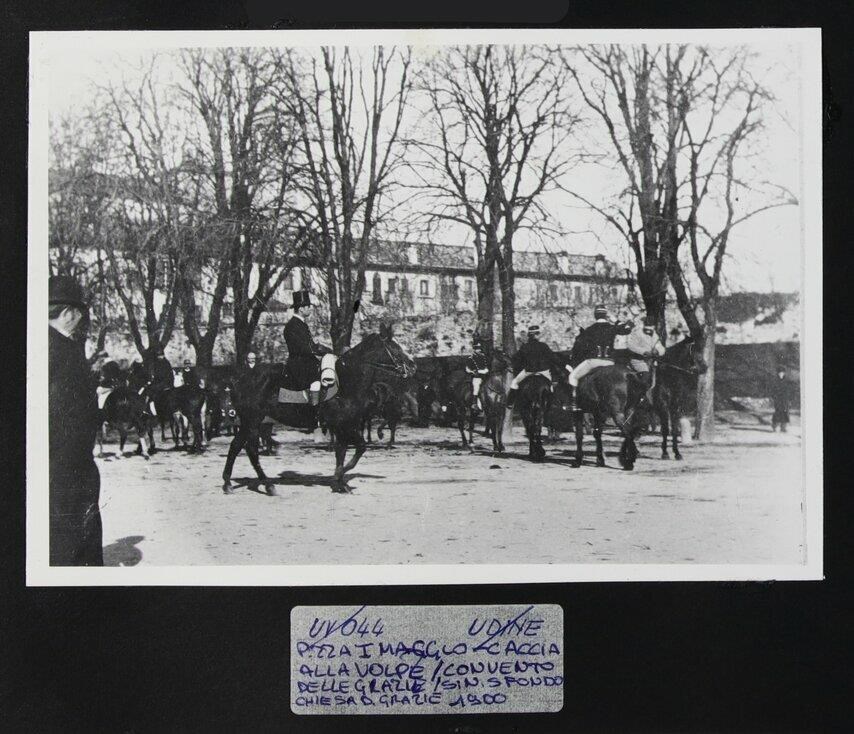 UV044 UDINE
P.ZZA I MAGGIO - CACCIA
ALLA VOLPE / CONVENTO
DELLE GRAZIE / SIN. SFONDO
CHIESA D. GRAZIE 1900